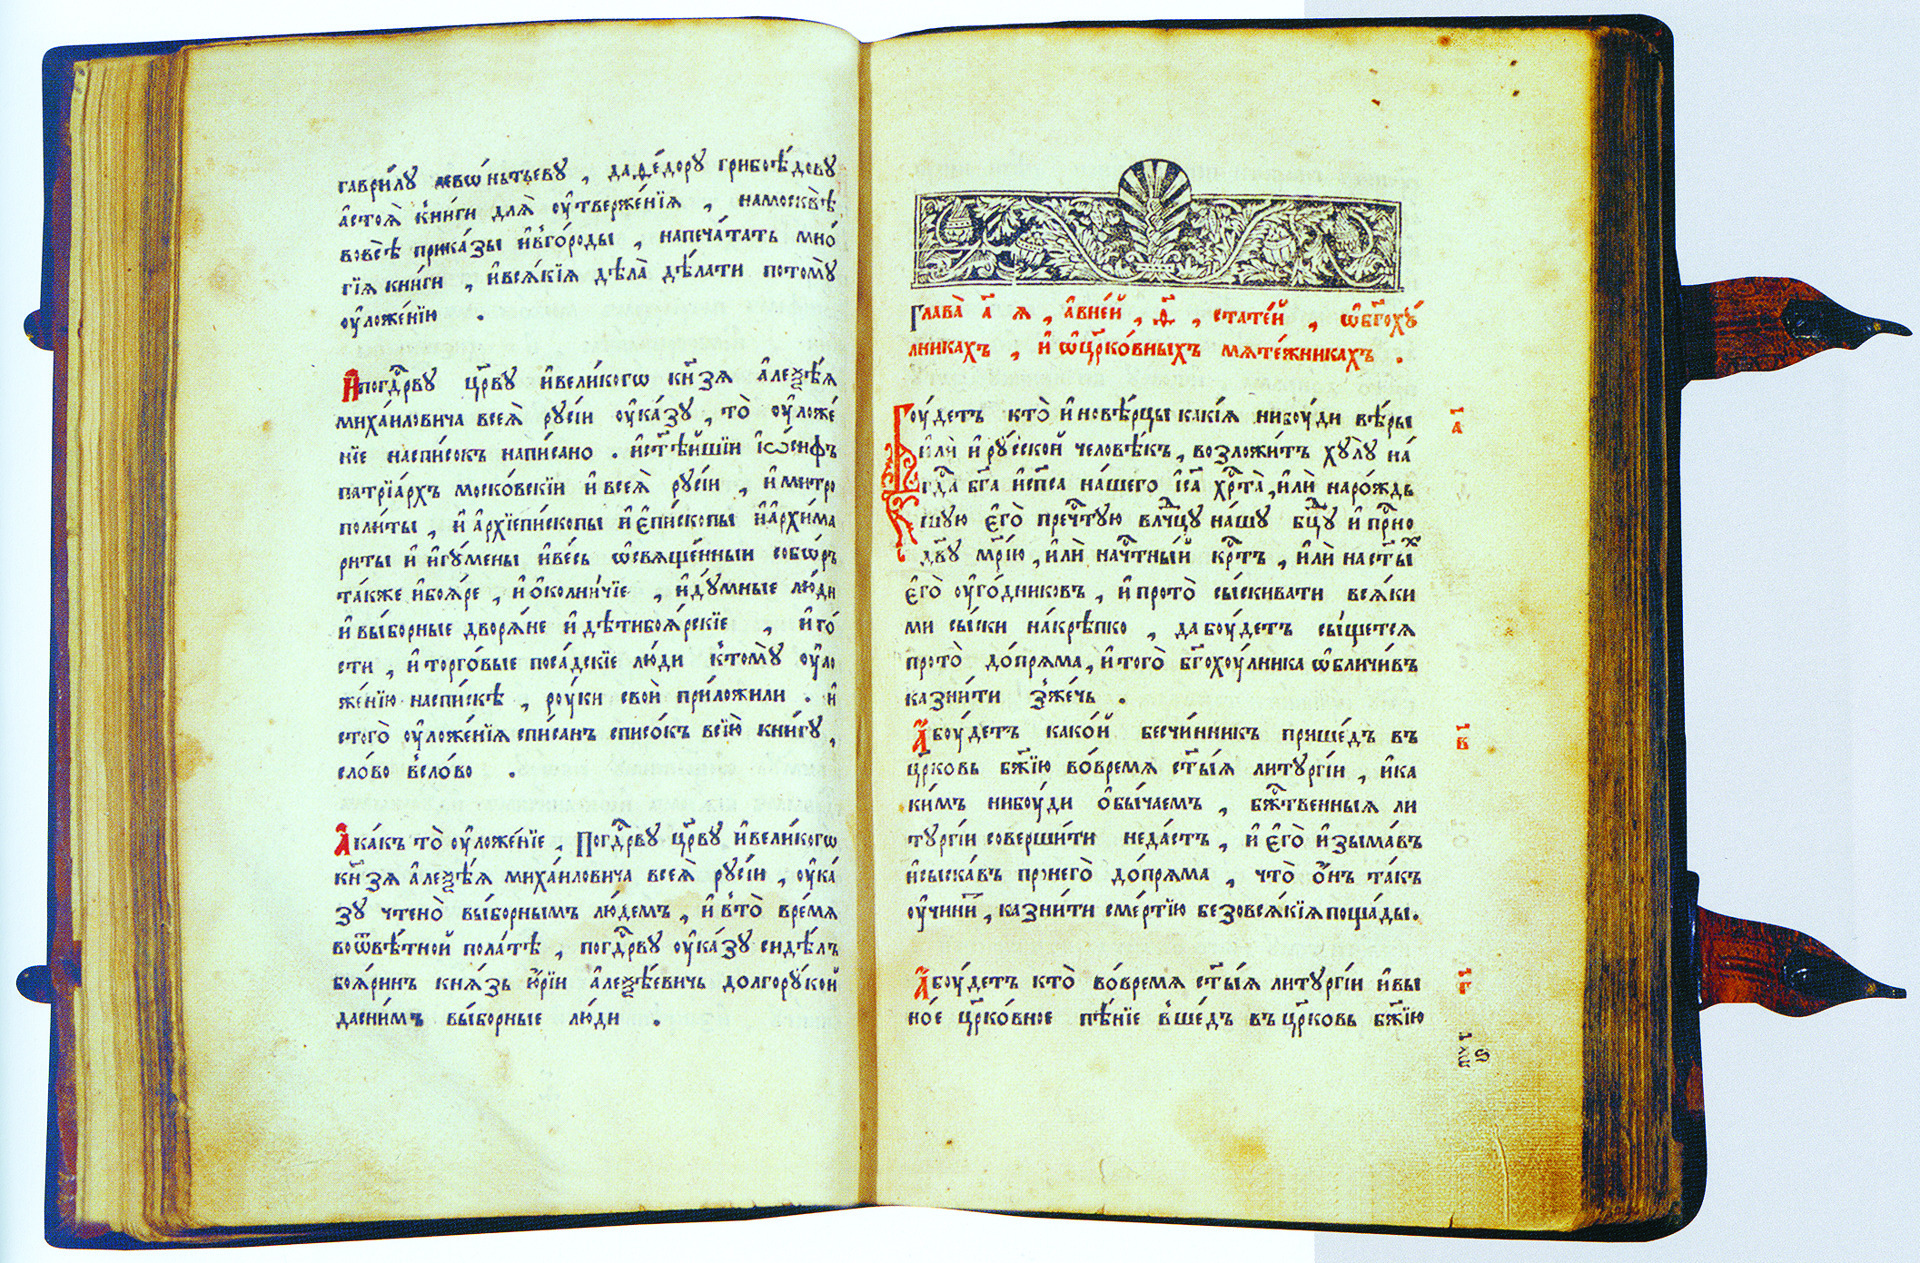 гаврилу леѡ́нтьеву , даѳе́дору грибоѣ́дову
а҆стоѧ̀ кни́ги длѧ̀ оу҆твержє́нїѧ , намосквѣ̀
вовсѣ̀ прика́зы и҆вго́роды , напеча́тать мно́
гїѧ кни́ги , и҆всѧ́кїѧ дѣла̀ дѣ́лати потомꙋ̀
оу҆ложе́нїю .
И҆погдⷭ҇рву цр҃ву и҆вели́когѡ кн҃зѧ а҆леѯѣ́ѧ
миха́иловича всеѧ̀ русі́и оу҆ка́зу , то̀ оу҆ложе́
нїе наспи́сокъ напи́сано . и҆ст҃ѣ́йшїи і҆ѡ́сифъ
патрїа́рхъ моско́вскїи и҆всеѧ̀ русі́и , и҆митро
поли́ты , и҆ а҆рхїепи́скопы и҆ є҆пи́скопы и҆а҆рхима
ри́ты и҆ и҆гу́мены и҆ве́сь ѡ҆свѧще́нныи собо́ръ
та́кже и҆боѧ́ре , и҆ о҆ко́лничїе , и҆ду́мные лю́ди
и҆ вы́борные дворѧ́не и҆ дѣ́тибоѧ́рскїе , и҆ го́
сти , и҆ торго́вые поса́дскїе лю́ди к̾томꙋ̀ оу҆ло
же́нїю наспи́скѣ , роу́ки своѝ приложи́ли . и҆
стого̀ оу҆ложе́нїѧ спи́санъ спи́сокъ всїю̀ кни́гу ,
сло́во в̾сло́во .
А҆ ка́къ то̀ оу҆ложе́нїе , погдⷭ҇рву цр҃ву и҆вели́когѡ
кн҃зѧ а҆леѯѣ́ѧ миха́иловича всеѧ̀ русі́и , оу҆ка́
зу чтено̀ вы́борнымъ лю́демъ , и҆ в̾то̀ вре́мѧ
воѿвѣ́тной пола́тѣ , погдⷭ҇рву оу҆ка́зу сидѣ́лъ
боѧ́ринъ кнѧ́зь ю҆́рїи а҆леѯѣ́евичь долгору́кой
дасни́мъ вы́борные лю́ди .
Глава̀ а҃ ѧ , а҆вне́й , ѳ҃ , стате́й , ѡ҆бг҃оху́
лникахъ , и҆ ѡ҆цр҃ко́вныхъ мѧте́жникахъ .
Боу́детъ кто̀ и҆новѣ́рцы какі́ѧ нибоу́ди вѣ́ры
и҆лѝ и҆ ру́сской человѣ́къ , возложи́тъ хулу̀ на́
гдⷭ҇а бг҃а и҆сп҃са на́шего і҆с҃а хрⷭ҇та̀ , и҆лѝ наро́ждь
шую є҆го̀ пречⷭ҇тую влⷣчцу на́шу бцⷣу и҆ прⷭ҇но
дв҃у мр҃і́ю , и҆лѝ начⷭ҇тны́й крⷭ҇тъ , и҆лѝ наст҃ыⷯ
є҆го̀ оу҆го́дниковъ , и҆ прото̀ сы́скивати всѧ́ки
ми сы́ски накрѣ́пко , да боу́детъ сы́щетсѧ
прото̀ допрѧ́ма , и҆ того̀ бг҃охоу́лника ѡ҆бличи́въ
казни́ти з̾же́чь .
а҃
А҆ боу́детъ како́й бесчи́нникъ прише́дъ въ
цр҃ковь бж҃їю во́времѧ ст҃ы́ѧ литургі́и , и҆ка
ки́мъ нибоу́ди о҆бы́чаемъ , бжⷭ҇твенныѧ ли
тургі́и соверши́ти неда́стъ , и҆ є҆го̀ и҆зыма́въ
и҆сыска́въ пронего̀ допрѧ́ма , что̀ о҆́нъ та́къ
оу҆чини́тъ , казни́ти сме́ртїю безовсѧ́кїѧ поща́ды .
в҃
А҆ боу́детъ кто̀ во́времѧ ст҃ы́ѧ литургі́и и҆вы
но́е цр҃ко́вное пѣ́нїе в̾ше́дъ въ цр҃ковь бж҃їю
г҃